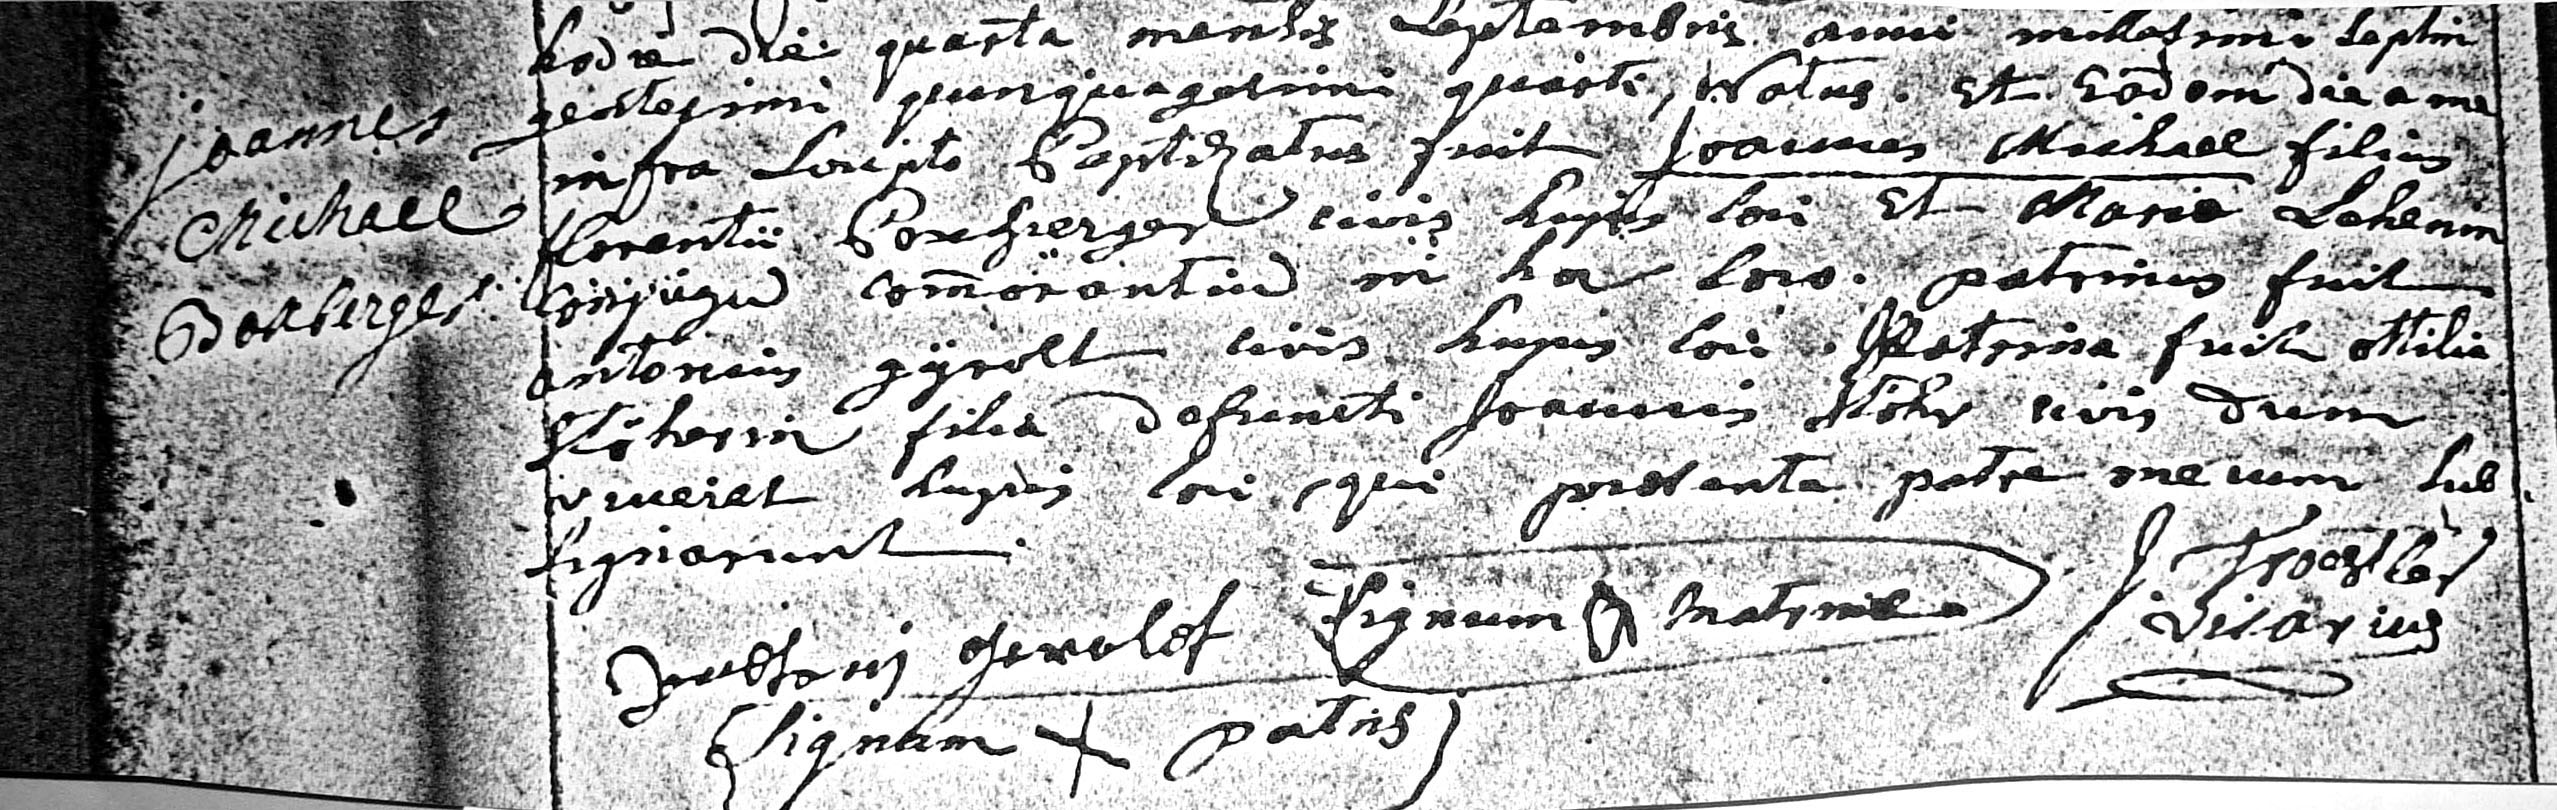 Joannes
Michael
Boxberger
hodie die quarta mensis Septembris anni millesimi septin
gentesimi quinquagesimi quarti, Natus. Et Eodem die a me
infra scripto Baptizatus fuit Joannes Michael filius
florentii Boxberger civis hujus loci Et Mariæ Lehenin
conjugū com̄orantiū in hoc loco. patrinus fuit
antonius gÿrolt civis hujus loci. Matrina fuit ottilia
Stöhrin filia defuncti Joannis Stöhr civis dum
viveret hujus loci, qui præsente patre mecum sub
signarunt.
gerolet
Signum matrinæ
Troestler
vicarius
Signum + patris